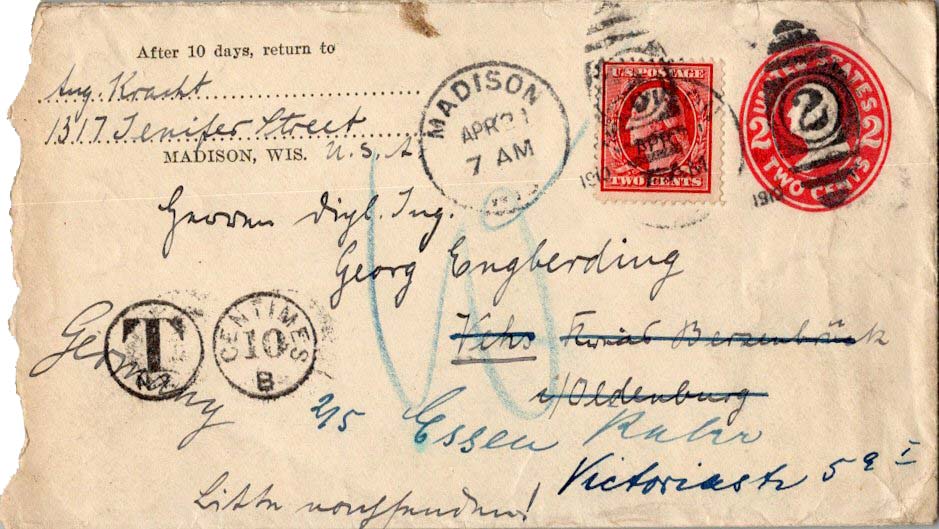 After 10 days, return to
Aug. Kracht
1317 Jenifer Street
MADISON, WIS. U.S.A
MADISON
APR 21
7 AM
WIS
U.S. POSTAGE
TWO CENTS
1910
UNITED STATES
2 2
TWO CENTS
1910
Herrn dipl. Ing.
Georg Engberding
Vehs Kreis Bersenbrück
i/Oldenburg
Germany
T
N.Y.
CENTIMES
10
B
2/5 Essen Ruhr
Victoriastr 59 I
Bitte nachsenden!